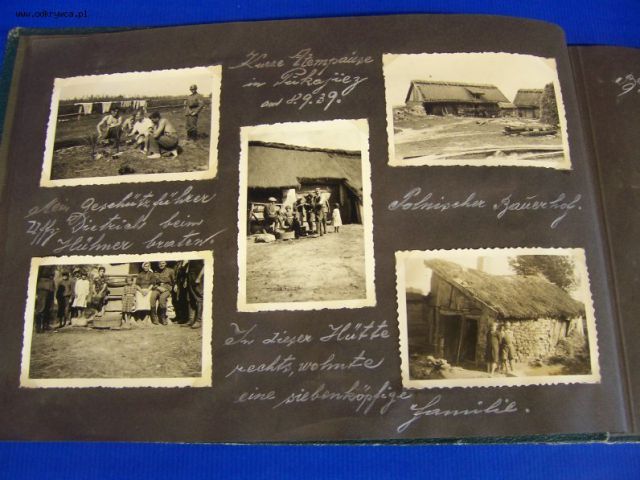 www.odkrywca.pl
Kurze Atempause
in
am 8.9.39.
Mein Geschützführer
Uffz. Dietrich beim
Hühner braten.
Polnischer Bauerhof.
In dieser Hütte
rechts, wohnte
eine siebenköpfige
Familie.